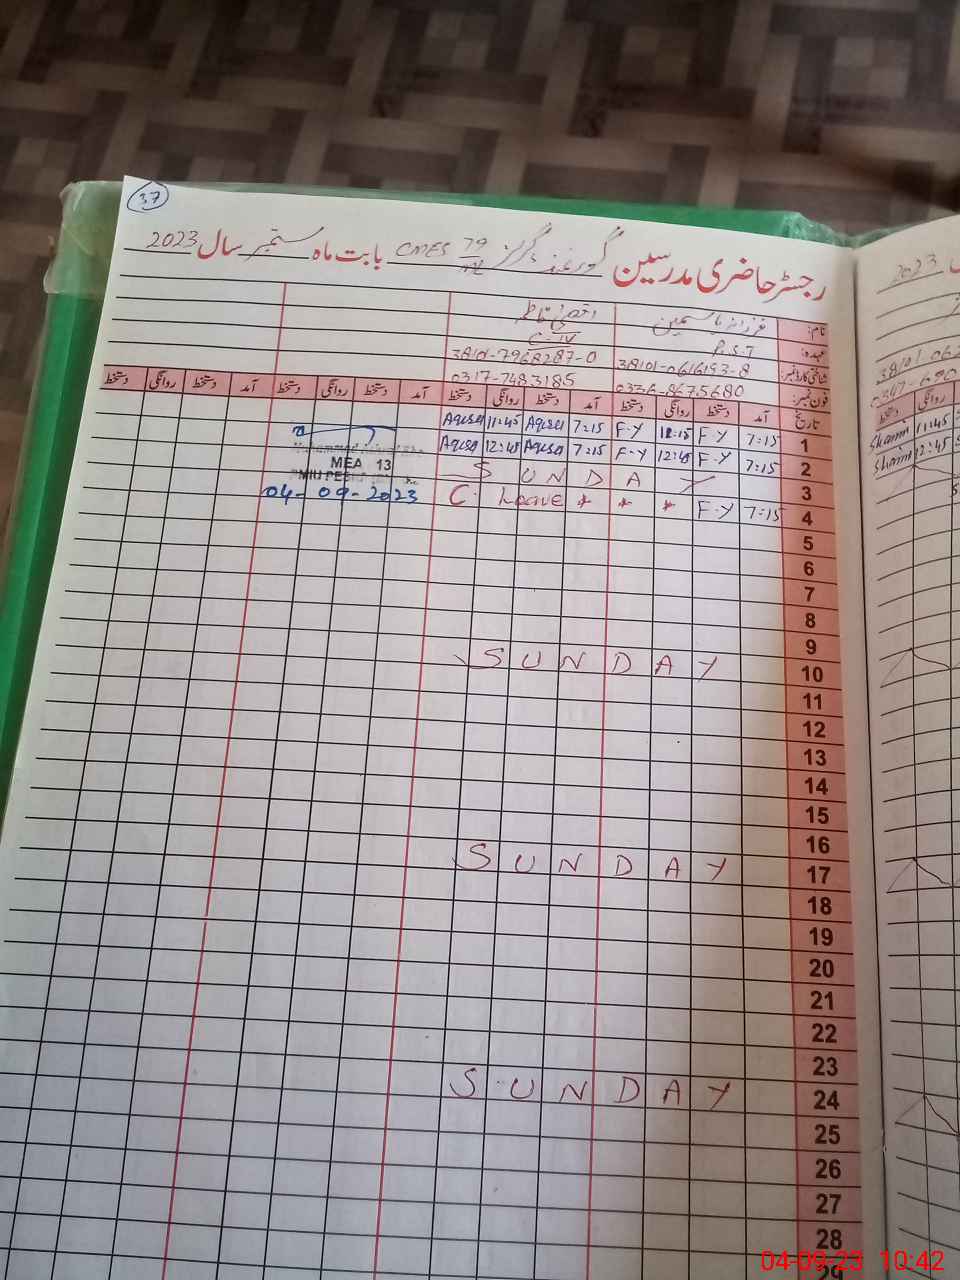 37
رجسٹر حاضری مدرسین گورنمنٹ گرلز CMES 79 بابت ماہ ستمبر سال 2023
نام: فرزانہ یاسمین
عہدہ: P.S.T C-IV
شناختی کارڈ نمبر: 38101-0616193-8 38101-7968287-0
فون نمبر: 0336-8675680 0317-7483185
تاریخ آمد دستخط روانگی دستخط آمد دستخط روانگی دستخط آمد دستخط روانگی دستخط آمد دستخط روانگی دستخط
1 7:15 F-Y 11:45 F-Y 7:15 Aqsa 11:45 Aqsa
2 7:15 F-Y 12:45 F-Y 7:15 Aqsa 12:45 Aqsa
3 SUNDAY
4 7:15 F-Y * * * C. Leave
MEA 13
04-09-2023
5
6
7
8
9
10 SUNDAY
11
12
13
14
15
16
17 SUNDAY
18
19
20
21
22
23
24 SUNDAY
25
26
27
28
29
2023
38101-062
0347-690
دستخط روانگی
Shami 11:45
Shami 12:45
04-09-23 10:42